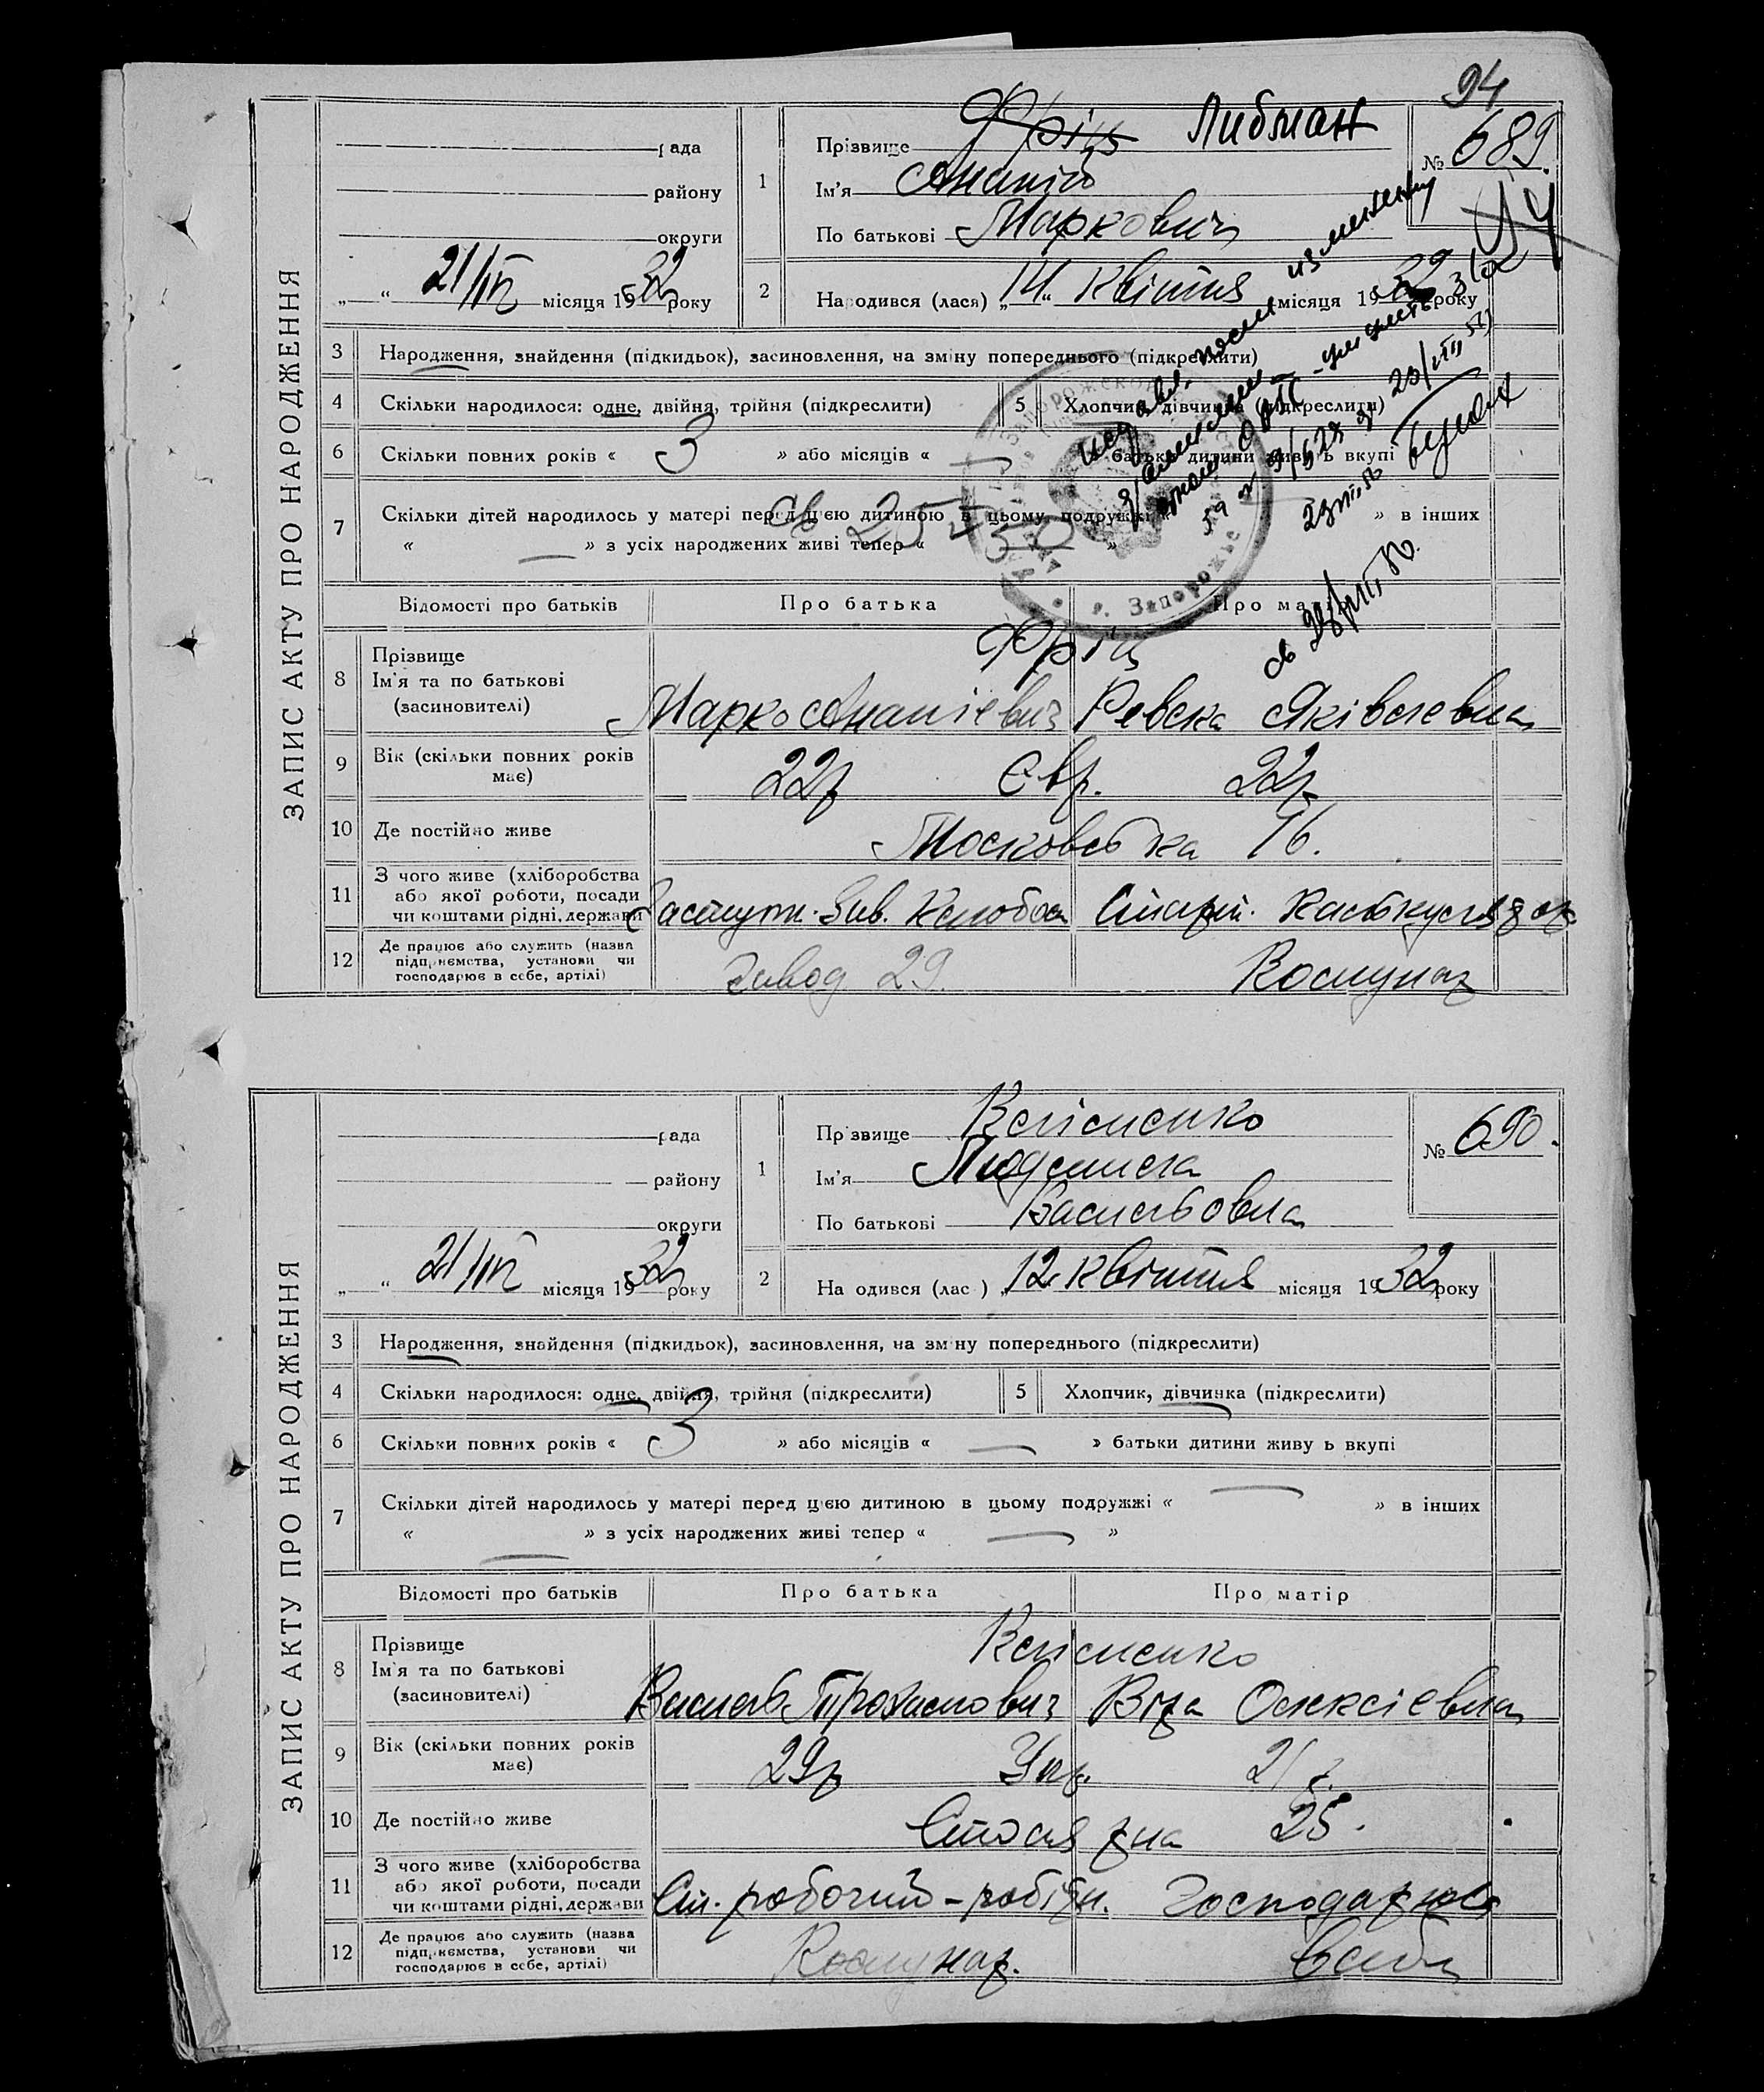 94
ЗАПИС АКТУ ПРО НАРОДЖЕННЯ
рада
району
округи
„ “ 21/IV місяця 1932 року
1
Прізвище Фріц Либман
Ім'я Ананій
По батькові Маркович
№ 689.
2
Народився (лася) „14“ квітня місяця 1932 року
3 Народження, знайдення (підкидьок), засиновлення, на зміну попереднього (підкреслити)
4 Скільки народилося: одне, двійня, трійня (підкреслити)
5 Хлопчик, дівчинка (підкреслити)
6 Скільки повних років « 3 » або місяців « — » батьки дитини живуть вкупі
7 Скільки дітей народилось у матері перед цією дитиною в цьому подружжі « » в інших
« — » з усіх народжених живі тепер « — »
г. Запорожье
Відомості про батьків
Про батька
Про матір
8 Прізвище
Ім'я та по батькові
(засновителі)
Фріц
Марко Ананієвич
Ревека Яківлевна
9 Вік (скільки повних років має)
22р Євр. 22р.
10 Де постійно живе
Московська 16.
11 З чого живе (хліборобства
або якої роботи, посади
чи коштами рідні, держави
12 Де працює або служить (назва
підприємства, установи чи
господарює в себе, артілі)
Завод 29.
Комунар
ЗАПИС АКТУ ПРО НАРОДЖЕННЯ
рада
району
округи
„ “ 21/IV місяця 1932 року
1
Прізвище Клименко
Ім'я Людмила
По батькові Васильовна
№ 690.
2
Народився (лася) „12 квітня місяця 1932 року
3 Народження, знайдення (підкидьок), засиновлення, на зміну попереднього (підкреслити)
4 Скільки народилося: одне, двійня, трійня (підкреслити)
5 Хлопчик, дівчинка (підкреслити)
6 Скільки повних років « 3 » або місяців « — » батьки дитини живуть вкупі
7 Скільки дітей народилось у матері перед цією дитиною в цьому подружжі « — » в інших
« — » з усіх народжених живі тепер « — »
Відомості про батьків
Про батька
Про матір
8 Прізвище
Ім'я та по батькові
(засиновителі)
Клименко
Василь
Віра Олексієвна
9 Вік (скільки повних років має)
29р Укр. 21р.
10 Де постійно живе
Столярна 25.
11 З чого живе (хліборобства
або якої роботи, посади
чи коштами рідні, держави
Ст. робочий – робітн.
Господарює
12 Де працює або служить (назва
підприємства, установи чи
господарює в себе, артілі)
Комунар.